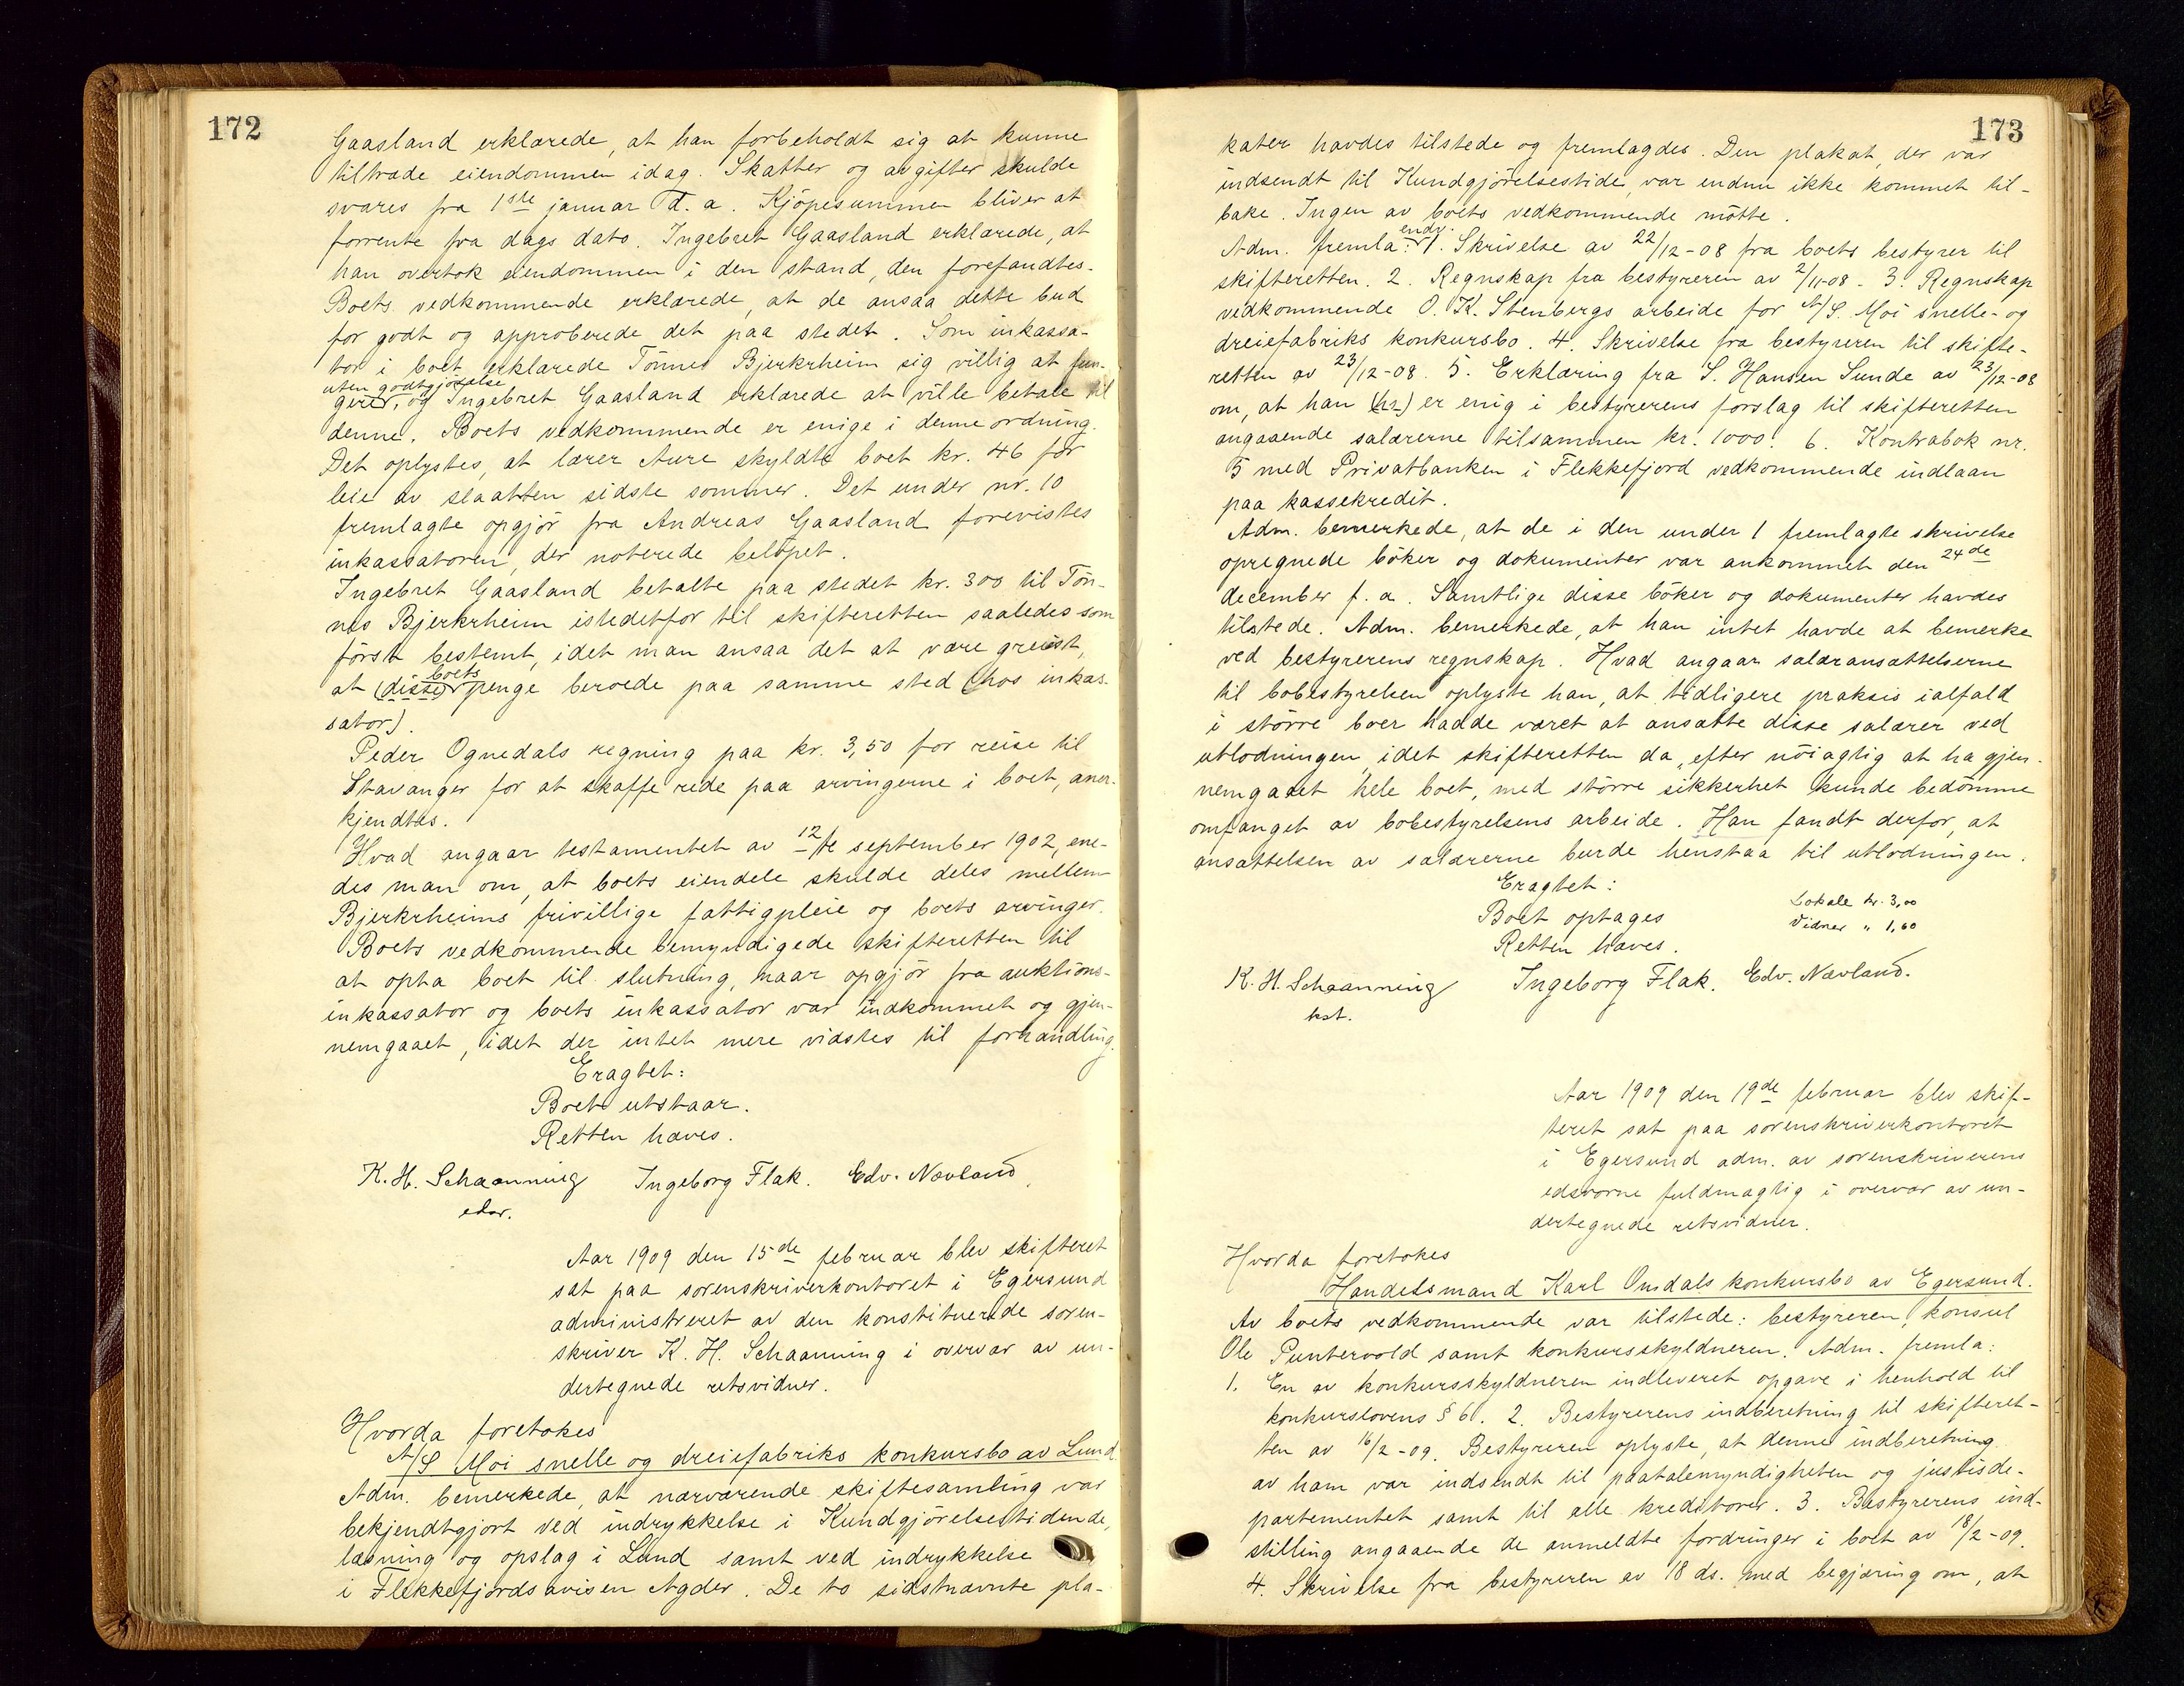 172
Gaasland erklærede, at han forbeholdt sig at kunne
tiltræde eiendommen idag. Skatter og avgifter skulde
svares fra 1ste januar d. a. Kjøpesummen bliver at
forrente fra dags dato. Ingebret Gaasland erklærede, at
han overtok eiendommen i den stand, den forefandtes.
Boets vedkommende erklærede, at de ansaa dette bud
for godt og approberede det paa stedet. Som inkassa-
tor i boet erklærede Tönnes Bjerkrheim sig villig at fun-
uten godtgjörelse
gere, og Ingebret Gaasland erklærede at ville betale til
denne. Boets vedkommende er enige i denne ordning.
Det oplystes, at lærer Aure skyldte boet kr. 46 for
leie av slaatten sidste sommer. Det under nr. 10
fremlagte opgjör fra Andreas Gaasland forevistes
inkassatoren, der noterede belöpet.
Ingebret Gaasland betalte paa stedet kr. 300 til Tön-
nes Bjerkrheim istedetfor til skifteretten saaledes som
först bestemt, idet man ansaa det at være greiest,
boets
at (disse) penge beroede paa samme sted (hos inkas-
sator).
Peder Ognedals regning paa kr. 3,50 for reise til
Stavanger for at skaffe rede paa arvingerne i boet, aner-
kjendtes.
Hvad angaar testamentet av 12/te september 1902, ene-
des man om, at boets eiendele skulde deles mellem
Bjerkrheims frivillige fattigpleie og boets arvinger.
Boets vedkommende bemyndigede skifteretten til
at opta boet til slutning, naar opgjör fra auktions-
inkassator og boets inkassator var indkommet og gjen-
nemgaaet, idet der intet mere vidstes til forhandling.
Eragtet:
Boet utstaar.
Retten hæves.
K. H. Schaanning Ingeborg Flak. Edv. Nævland.
Aar 1909 den 15de februar blev skifteret
sat paa sorenskriverkontoret i Egersund
administreret av den konstituerede soren-
skriver K. H. Schaanning i overvær av un-
dertegnede retsvidner.
Hvorda foretokes
A/S Moi snelle og dreiefabriks konkursbo av Lund.
Adm. bemerkede, at nærværende skiftesamling var
bekjendtgjort ved indrykkelse i Kundgjörelsestidende,
læsning og opslag i Lund samt ved indrykkelse
i Flekkefjordsavisen Agder. De to sidstnævnte pla-
173
kater havdes tilstede og fremlagdes. Den plakat, der var
indsendt til Kundgjörelsestide, var endnu ikke kommet til-
bake. Ingen av boets vedkommende mötte.
endv.
Adm. fremla: 1. Skrivelse av 22/12-08 fra boets bestyrer til
skifteretten. 2. Regnskap fra bestyreren av 2/11-08. 3. Regnskap
vedkommende O. K. Stenbergs arbeide for A/S. Moi snelle- og
dreiefabriks konkursbo. 4. Skrivelse fra bestyreren til skifte-
retten av 23/12-08. 5. Erklæring fra S. Hansen Sunde av 23/12-08
om, at han (hr.) er enig i bestyrerens forslag til skifteretten
angaaende salærerne tilsammen kr. 1000. 6. Kontrabok nr.
5 med Privatbanken i Flekkefjord vedkommende indlaan
paa kassekredit.
Adm. bemerkede, at de i den under 1 fremlagte skrivelse
opregnede böker og dokumenter var ankommet den 24de
december f. a. Samtlige disse böker og dokumenter havdes
tilstede. Adm. bemerkede, at han intet havde at bemerke
ved bestyrerens regnskap. Hvad angaar salæransættelserne
til bobestyrelsen oplyste han, at tidligere praksis ialfald
i större boer hadde været at ansætte disse salærer ved
utlodningen, idet skifteretten da, efter nöiagtig at ha gjen-
nemgaaet hele boet, med större sikkerhet kunde bedömme
omfanget av bobestyrelsens arbeide. Han fandt derfor, at
ansættelsen av salærerne burde henstaa til utlodningen.
Eragtet:
Boet optages
Retten hæves.
Lokale kr. 3,00
Vidner " 1,60
K. H. Schaanning Ingeborg Flak. Edv. Nævland.
kst.
Aar 1909 den 19de februar blev skif-
teret sat paa sorenskriverkontoret
i Egersund adm. av sorenskriverens
edsvorne fuldmægtig i overvær av un-
dertegnede retsvidner.
Hvorda foretokes
Handelsmand Karl Omdals konkursbo av Egersund.
Av boets vedkommende var tilstede: bestyreren, konsul
Ole Puntervold samt konkursskyldneren. Adm. fremla:
1. En av konkursskyldneren indleveret opgave i henhold til
konkurslovens § 61. 2. Bestyrerens indberetning til skifteret-
ten av 16/2-09. Bestyreren oplyste, at denne indberetning
av ham var indsendt til paatalemyndigheten og justisde-
partementet samt til alle kreditorer. 3. Bestyrerens ind-
stilling angaaende de anmeldte fordringer i boet av 18/2-09.
4. Skrivelse fra bestyreren av 18 ds. med begjæring om, at